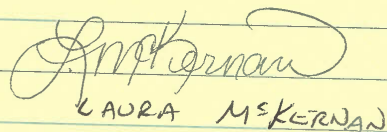 L McKernan
LAURA McKERNAN